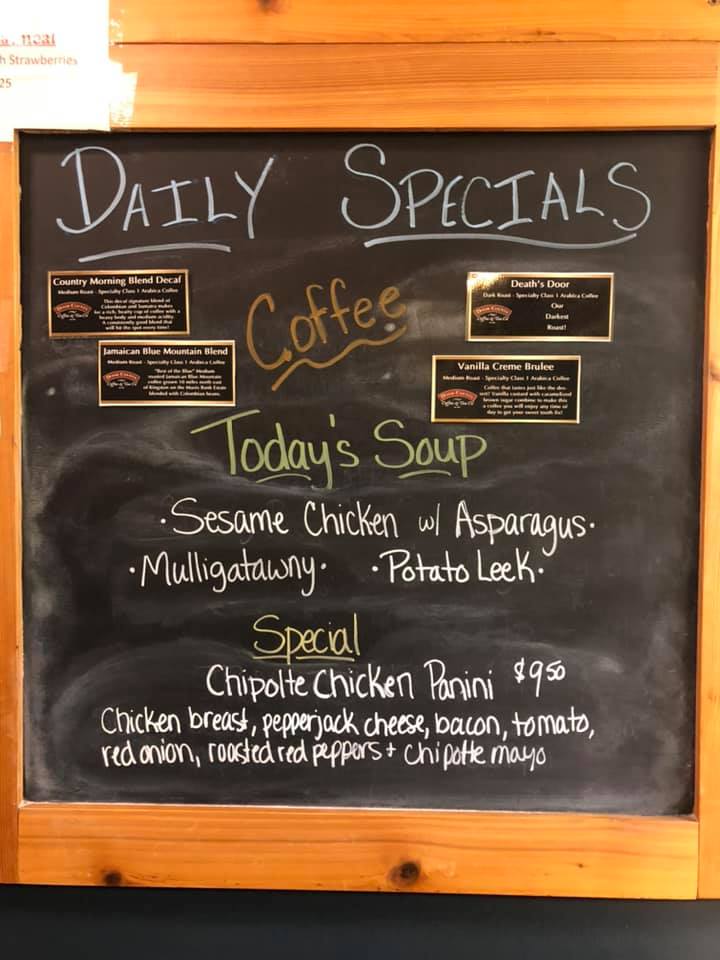 h Strawberries
25
DAILY SPECIALS
Coffee
Country Morning Blend Decaf
Medium Roast - Specialty Class 1 Arabica Coffee
This decaf signature blend of
Colombian and Sumatra makes
for a rich, hearty cup of coffee with a
heavy body and medium acidity.
A consistently good blend that
will hit the spot every time!
Jamaican Blue Mountain Blend
Medium Roast - Specialty Class 1 Arabica Coffee
"Best of the Blue" Medium
roasted Jamaican Blue Mountain
coffee grown 10 miles north east
of Kingston on the Mavis Bank Estate
blended with Colombian beans.
Death's Door
Dark Roast - Specialty Class 1 Arabica Coffee
Our
Darkest
Roast!
Vanilla Creme Brulee
Medium Roast - Specialty Class 1 Arabica Coffee
Coffee that tastes just like the des-
sert! Vanilla custard with caramelized
brown sugar combine to make this
a coffee you will enjoy any time of
day to get your sweet tooth fix!
Today's Soup
·Sesame Chicken w/ Asparagus·
·Mulligatawny· ·Potato Leek·
Special
Chipolte Chicken Panini $9.50
Chicken breast, pepperjack cheese, bacon, tomato,
red onion, roasted red peppers + chipotle mayo